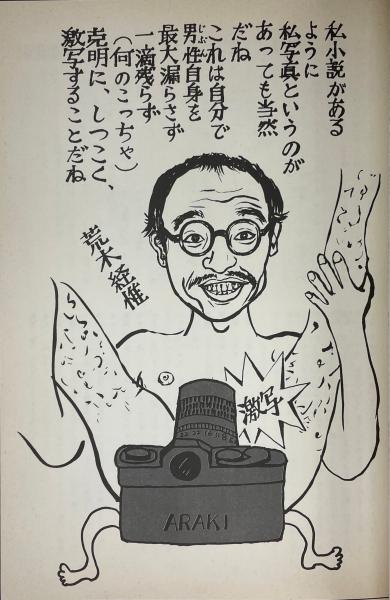 私小説がある
ように
私写真というのが
あっても当然
だね
これは自分で
じぶん
男性自身を
最大漏らさず
一滴残らず
（何のこっちゃ）
克明に、しつこく、
激写することだね
荒木経惟
激写
ARAKI